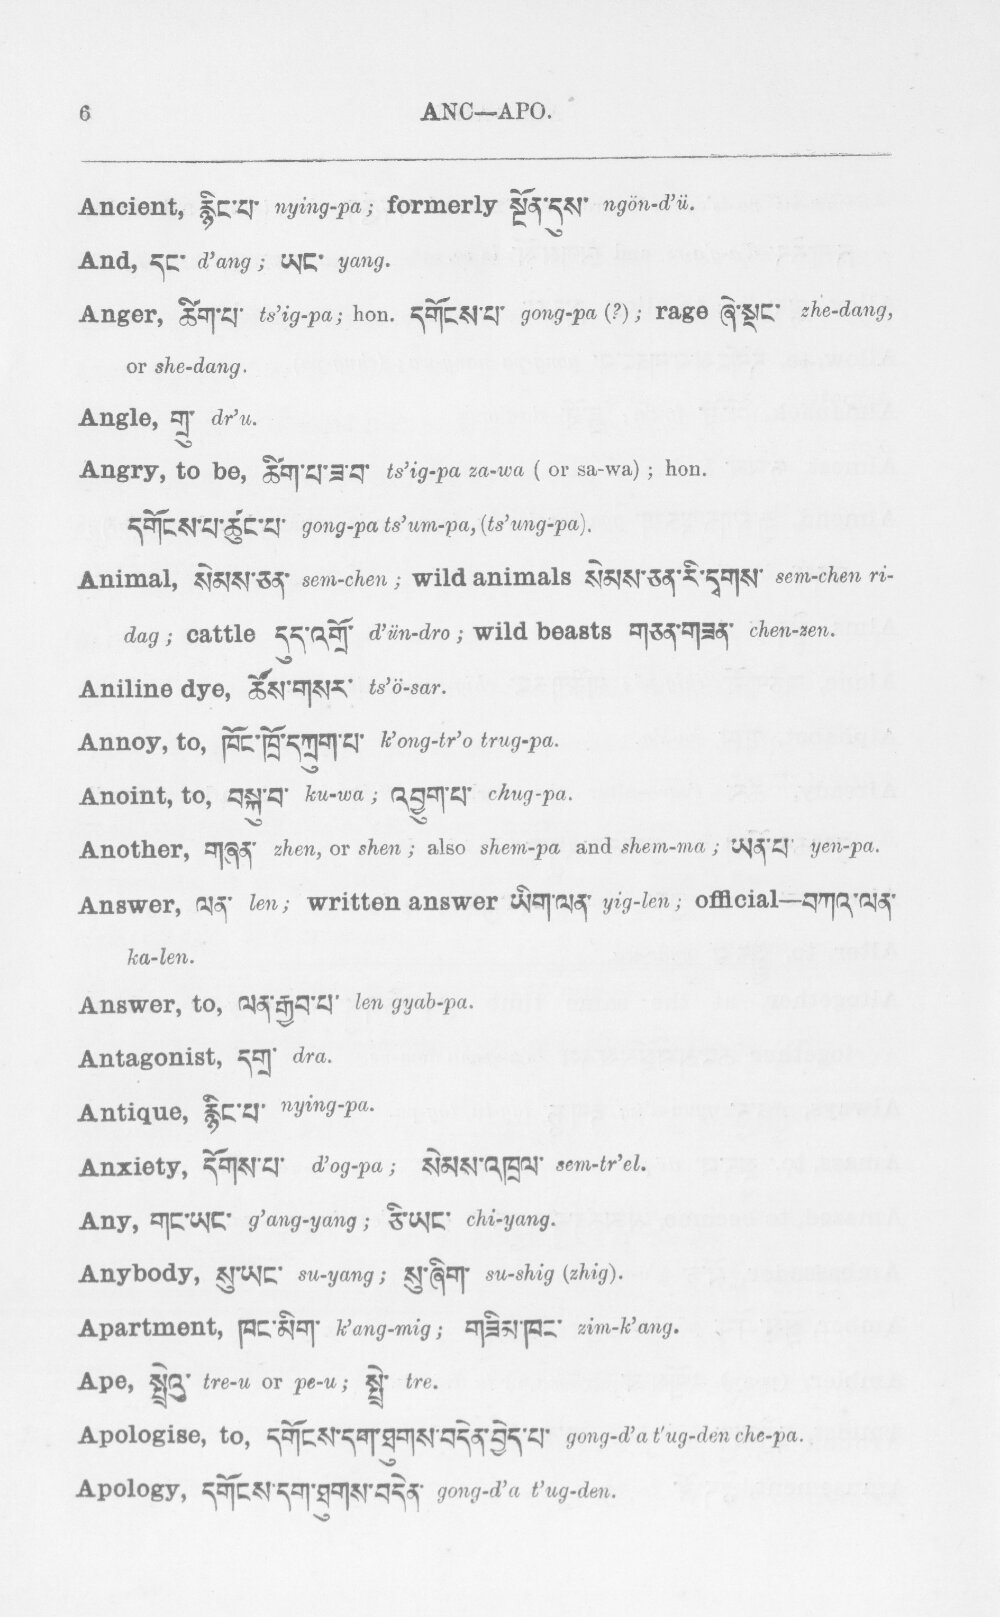 6 ANC—APO.
Ancient, རྙིང་པ་ nying-pa; formerly སྔོན་དུས་ ngön-d'ü.
And, དང་ d'ang; ཡང་ yang.
Anger, ཚིག་པ་ ts'ig-pa; hon. དགོངས་པ་ gong-pa (?); rage ཞེ་སྡང་ zhe-dang,
or she-dang.
Angle, གྲུ་ dr'u.
Angry, to be, ཚིག་པ་ཟ་བ་ ts'ig-pa za-wa (or sa-wa); hon.
དགོངས་པ་ཚུང་པ་ gong-pa ts'um-pa, (ts'ung-pa).
Animal, སེམས་ཅན་ sem-chen; wild animals སེམས་ཅན་རི་དྭགས་ sem-chen ri-
dag; cattle དུད་འགྲོ་ d'ün-dro; wild beasts གཅན་གཟན་ chen-zen.
Aniline dye, ཚོས་གསར་ ts'ö-sar.
Annoy, to, ཁོང་ཁྲོ་དཀྲུག་པ་ k'ong-tr'o trug-pa.
Anoint, to, བསྐུ་བ་ ku-wa; འབྱུག་པ་ chug-pa.
Another, གཞན་ zhen, or shen; also shem-pa and shem-ma; ཡན་པ་ yen-pa.
Answer, ལན་ len; written answer ཡིག་ལན་ yig-len; official—བཀའ་ལན་
ka-len.
Answer, to, ལན་རྒྱབ་པ་ len gyab-pa.
Antagonist, དགྲ་ dra.
Antique, རྙིང་པ་ nying-pa.
Anxiety, དོགས་པ་ d'og-pa; སེམས་འཁྲལ་ sem-tr'el.
Any, གང་ཡང་ g'ang-yang; ཅི་ཡང་ chi-yang.
Anybody, སུ་ཡང་ su-yang; སུ་ཞིག་ su-shig (zhig).
Apartment, ཁང་མིག་ k'ang-mig; གཟིམ་ཁང་ zim-k'ang.
Ape, སྤྲེའུ་ tre-u or pe-u; སྤྲེ་ tre.
Apologise, to, དགོངས་དག་ཐུགས་བདེན་བྱེད་པ་ gong-d'a t'ug-den che-pa.
Apology, དགོངས་དག་ཐུགས་བདེན་ gong-d'a t'ug-den.